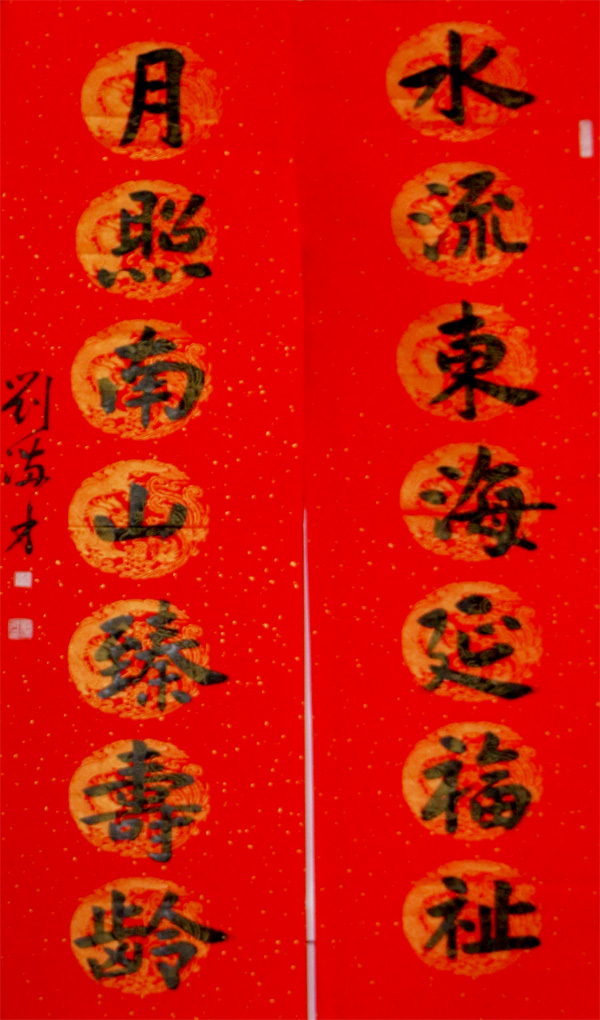 水流東海延福祉
月照南山臻壽龄
劉海才